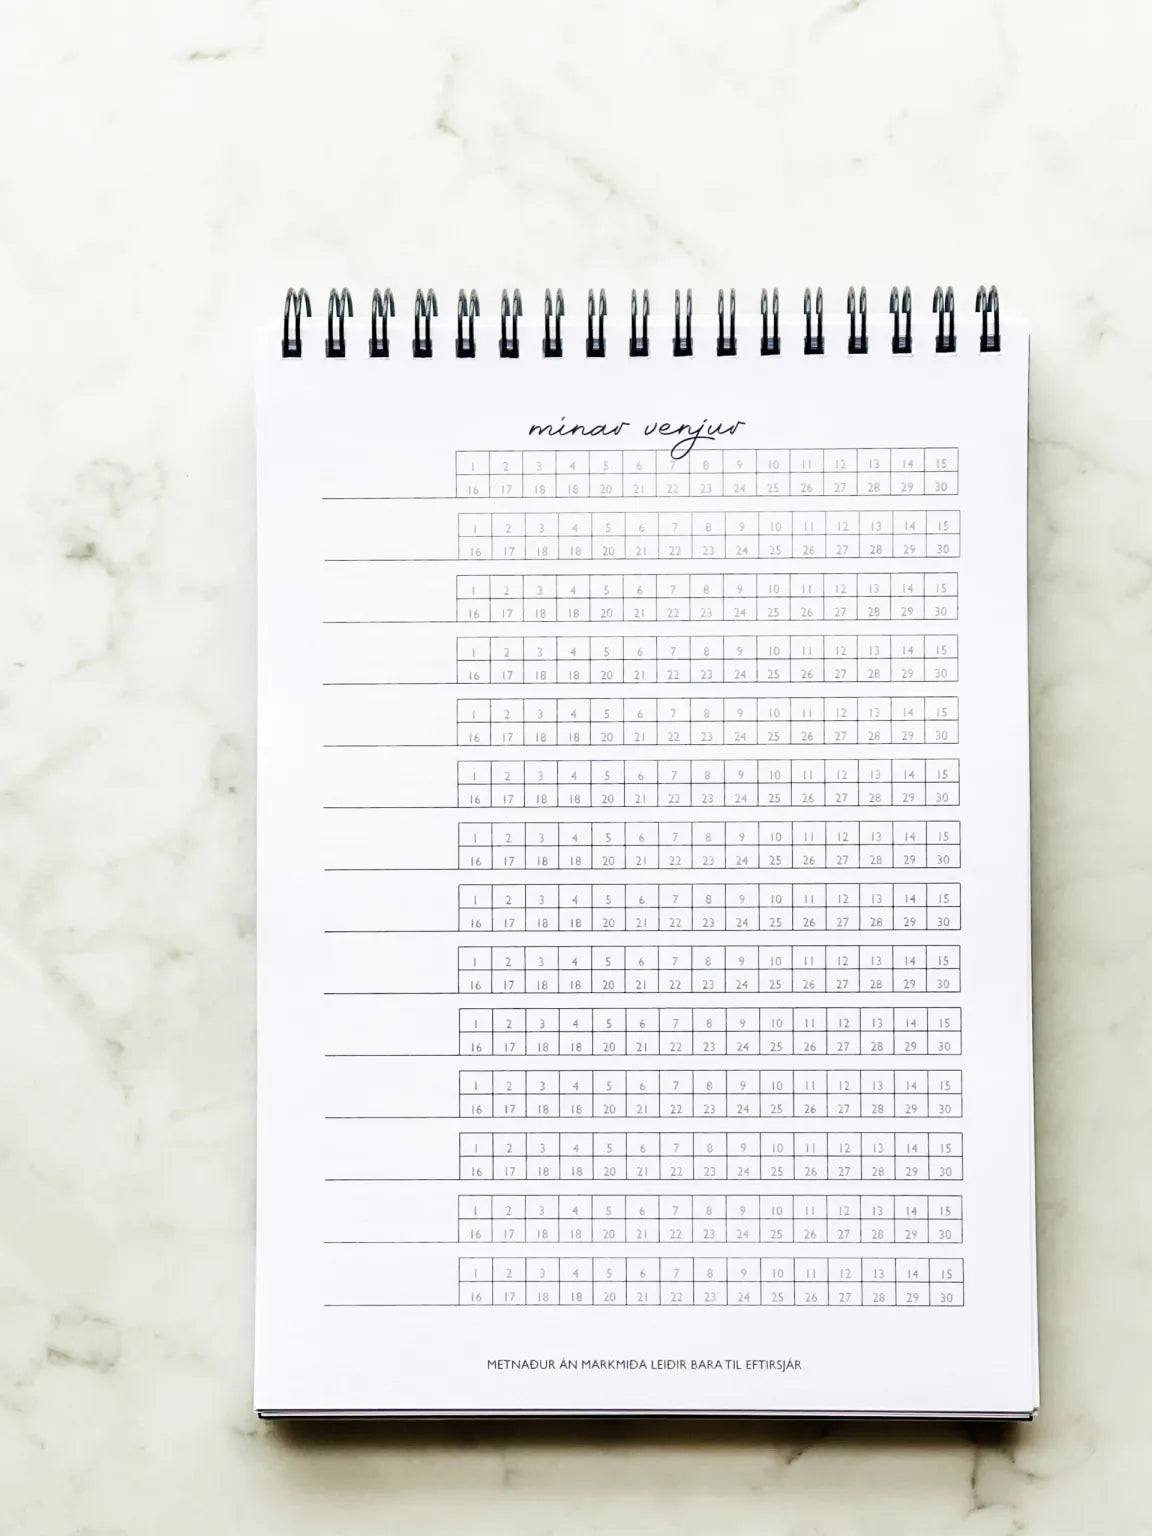 mínar venjur
1 2 3 4 5 6 7 8 9 10 11 12 13 14 15
16 17 18 18 20 21 22 23 24 25 26 27 28 29 30
1 2 3 4 5 6 7 8 9 10 11 12 13 14 15
16 17 18 18 20 21 22 23 24 25 26 27 28 29 30
1 2 3 4 5 6 7 8 9 10 11 12 13 14 15
16 17 18 18 20 21 22 23 24 25 26 27 28 29 30
1 2 3 4 5 6 7 8 9 10 11 12 13 14 15
16 17 18 18 20 21 22 23 24 25 26 27 28 29 30
1 2 3 4 5 6 7 8 9 10 11 12 13 14 15
16 17 18 18 20 21 22 23 24 25 26 27 28 29 30
1 2 3 4 5 6 7 8 9 10 11 12 13 14 15
16 17 18 18 20 21 22 23 24 25 26 27 28 29 30
1 2 3 4 5 6 7 8 9 10 11 12 13 14 15
16 17 18 18 20 21 22 23 24 25 26 27 28 29 30
1 2 3 4 5 6 7 8 9 10 11 12 13 14 15
16 17 18 18 20 21 22 23 24 25 26 27 28 29 30
1 2 3 4 5 6 7 8 9 10 11 12 13 14 15
16 17 18 18 20 21 22 23 24 25 26 27 28 29 30
1 2 3 4 5 6 7 8 9 10 11 12 13 14 15
16 17 18 18 20 21 22 23 24 25 26 27 28 29 30
1 2 3 4 5 6 7 8 9 10 11 12 13 14 15
16 17 18 18 20 21 22 23 24 25 26 27 28 29 30
1 2 3 4 5 6 7 8 9 10 11 12 13 14 15
16 17 18 18 20 21 22 23 24 25 26 27 28 29 30
1 2 3 4 5 6 7 8 9 10 11 12 13 14 15
16 17 18 18 20 21 22 23 24 25 26 27 28 29 30
1 2 3 4 5 6 7 8 9 10 11 12 13 14 15
16 17 18 18 20 21 22 23 24 25 26 27 28 29 30
METNAÐUR ÁN MARKMIÐA LEIÐIR BARA TIL EFTIRSJÁR